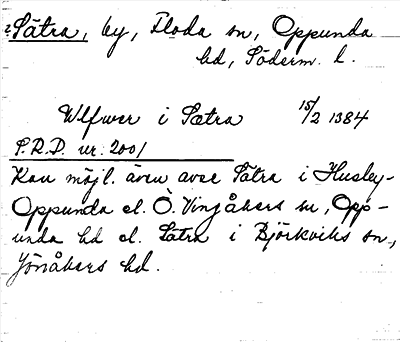 ? Sätra, by, Floda sn, Oppunda
hd, Söderm. l.
Wlfwer i Sætra 15/2 1384
S.R.P. nr. 2001
Kan möjl. även avse Sätra i Husby-
Oppunda el. Ö. Vingåkers sn, Opp-
unda hd el. Sätra i Björkviks sn,
Jönåkers hd.